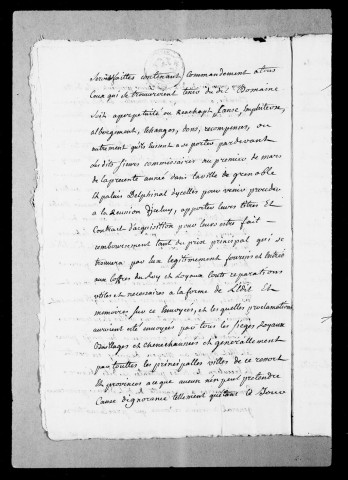 seroient faittes contenant commandement a tous
ceux qui se trouveroient tenir du dit Domaine
soit aperpetuité ou Reachapt Censé, Emphiteose,
albergement, Echanges, dons, recompenses, ou
autrement qu'ils eussent a se porter pardevant
lesdits sieurs commissaires au premier de mars
de la presente année dans la ville de grenoble
et palais Delphinal dycelle pour venir proceder
a la Reunion d'iceluy, apporter leurs titres et
Contract d'acquisition pour leur estre fait
remboursement tant du prix principal qui se
trouvera par eux legitimement fournis et entrés
aux Coffres du Roy et Loyaux Couts reparations
utiles et necessaires a la forme de L'Edit et
memoires sur ce envoyés, et les quelles proclamations
auroient eté envoyées par tous les sieges Royaux
Bailliages et Senechaussés et generallement
par touttes les principalles villes de ce ressort
et provinces a ce que aucun n'en peut pretendre
Cause d'ignorance tellement qu'etant le Jour